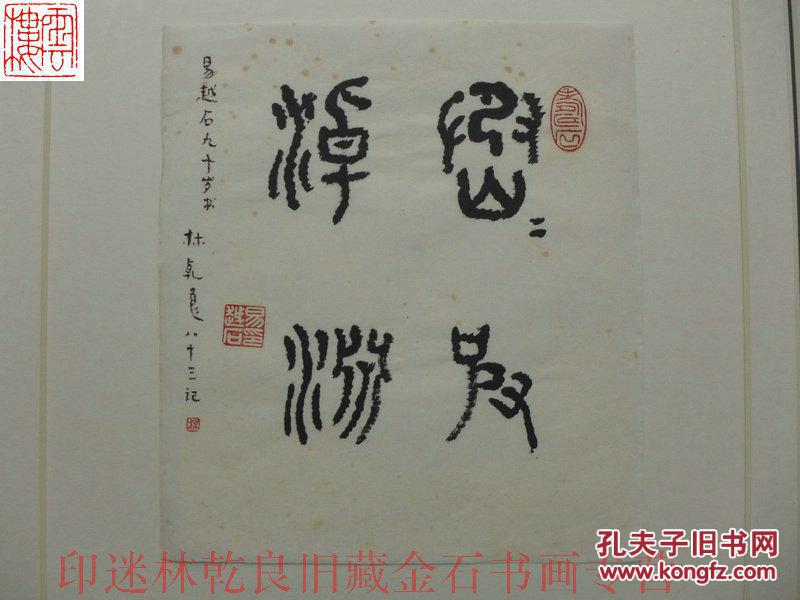 丞=皮
淖淵
易越石九十岁书
林乾良八十三记
易越石印
印迷林乾良旧藏金石书画专
孔夫子旧书网
www.kongfz.com